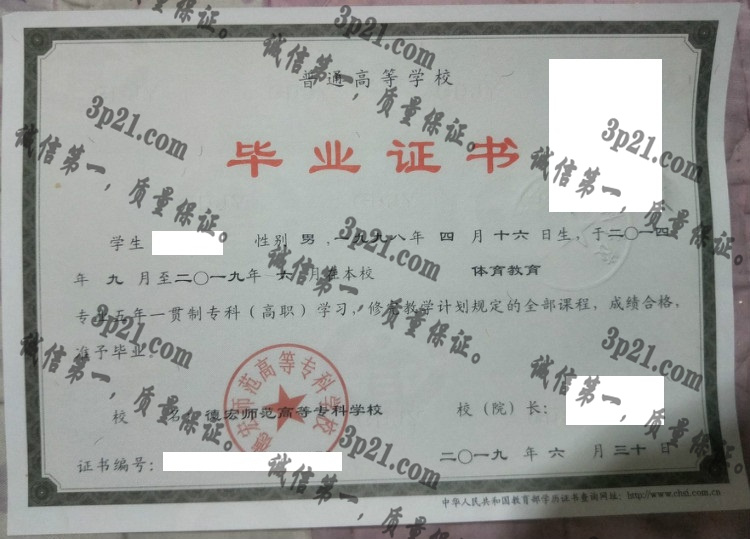 普通高等学校
毕业证书
学生 性别 男，一九九八年 四 月 十六 日生，于二〇一四
年 九 月至二〇一九年 六 月在本校 体育教育
专业五年一贯制专科（高职）学习，修完教学计划规定的全部课程，成绩合格，
准予毕业。
校 名：德宏师范高等专科学校
校（院）长：
证书编号：
二〇一九 年 六 月 三十 日
中华人民共和国教育部学历证书查询网址：http://www.chsi.com.cn
德宏师范高等专科学校
3p21.com
诚信第一，质量保证。
3p21.com
诚信第一，质量保证。
3p21.com
诚信第一，质量保证。
3p21.com
诚信第一，质量保证。
3p21.com
诚信第一，质量保证。
3p21.com
诚信第一，质量保证。
3p21.com
诚信第一，质量保证。
3p21.com
诚信第一，质量保证。